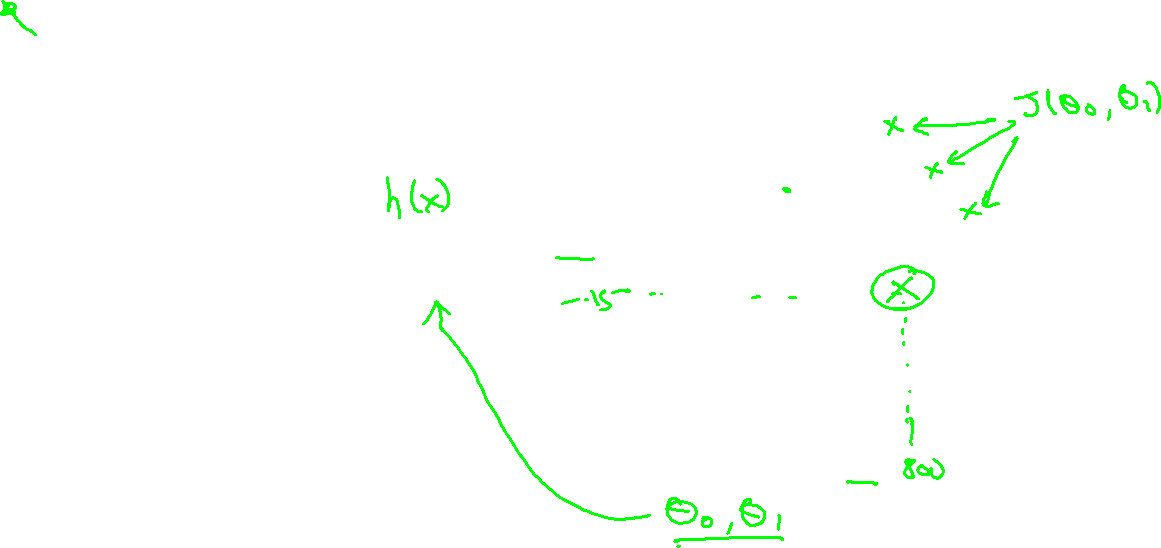 J(θ₀, θ₁)
x
x
h(x)
x
x
800
θ₀, θ₁